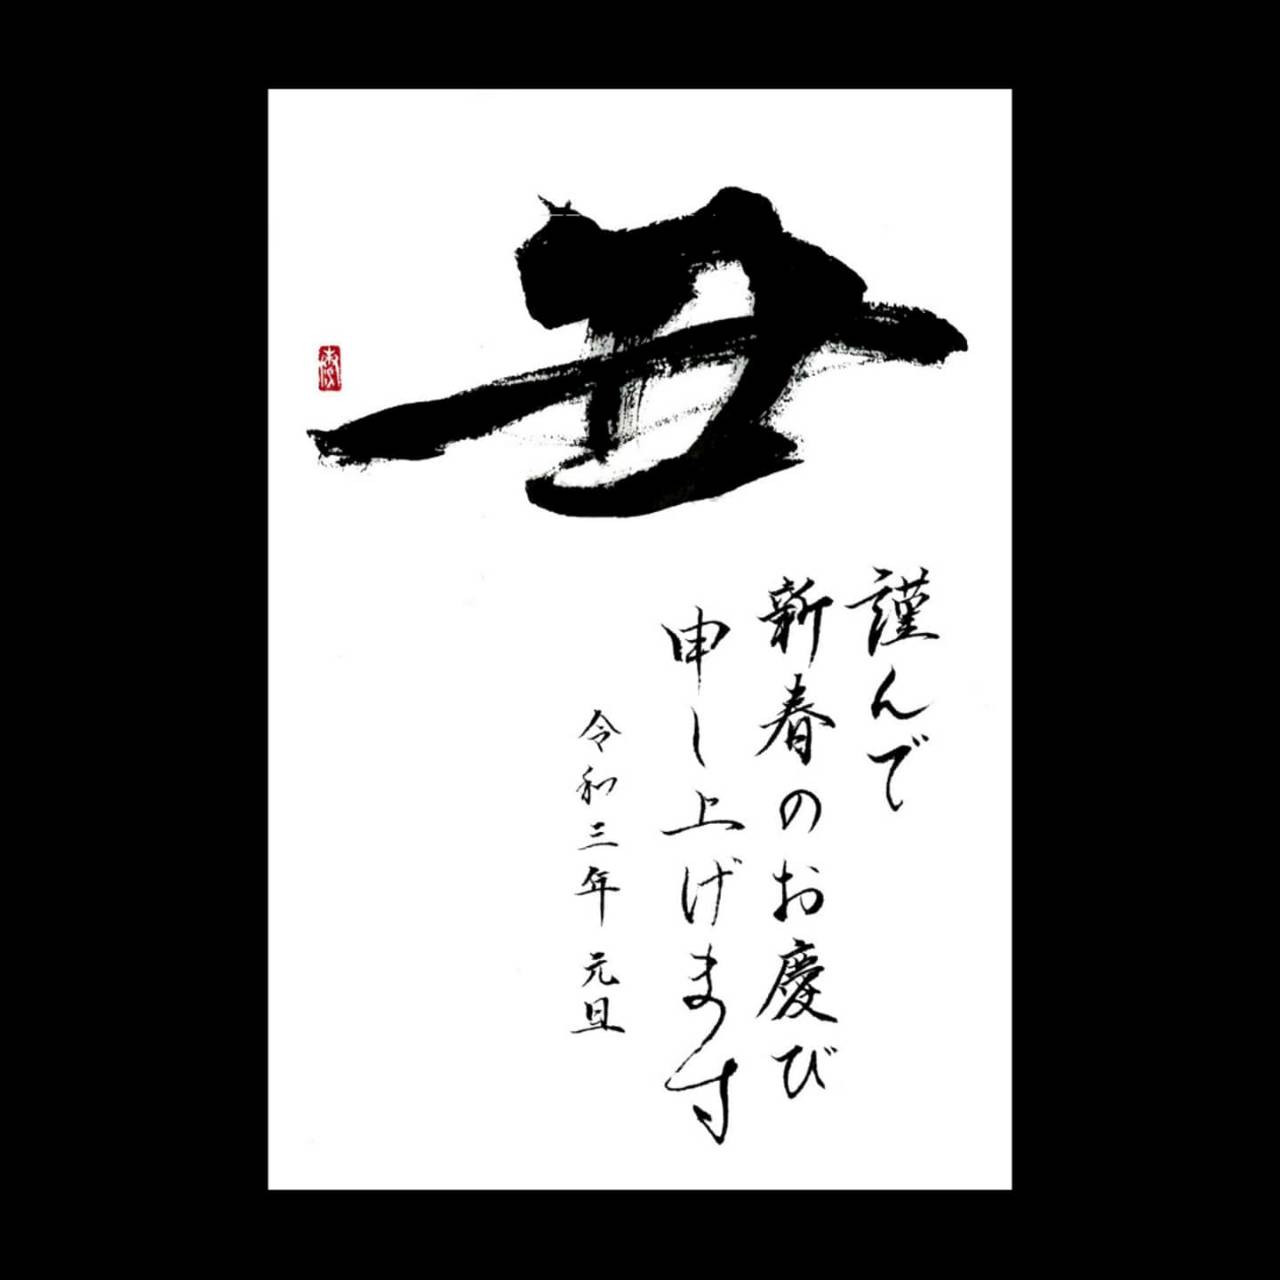 丑
謹んで
新春のお慶び
申し上げます
令和三年 元旦